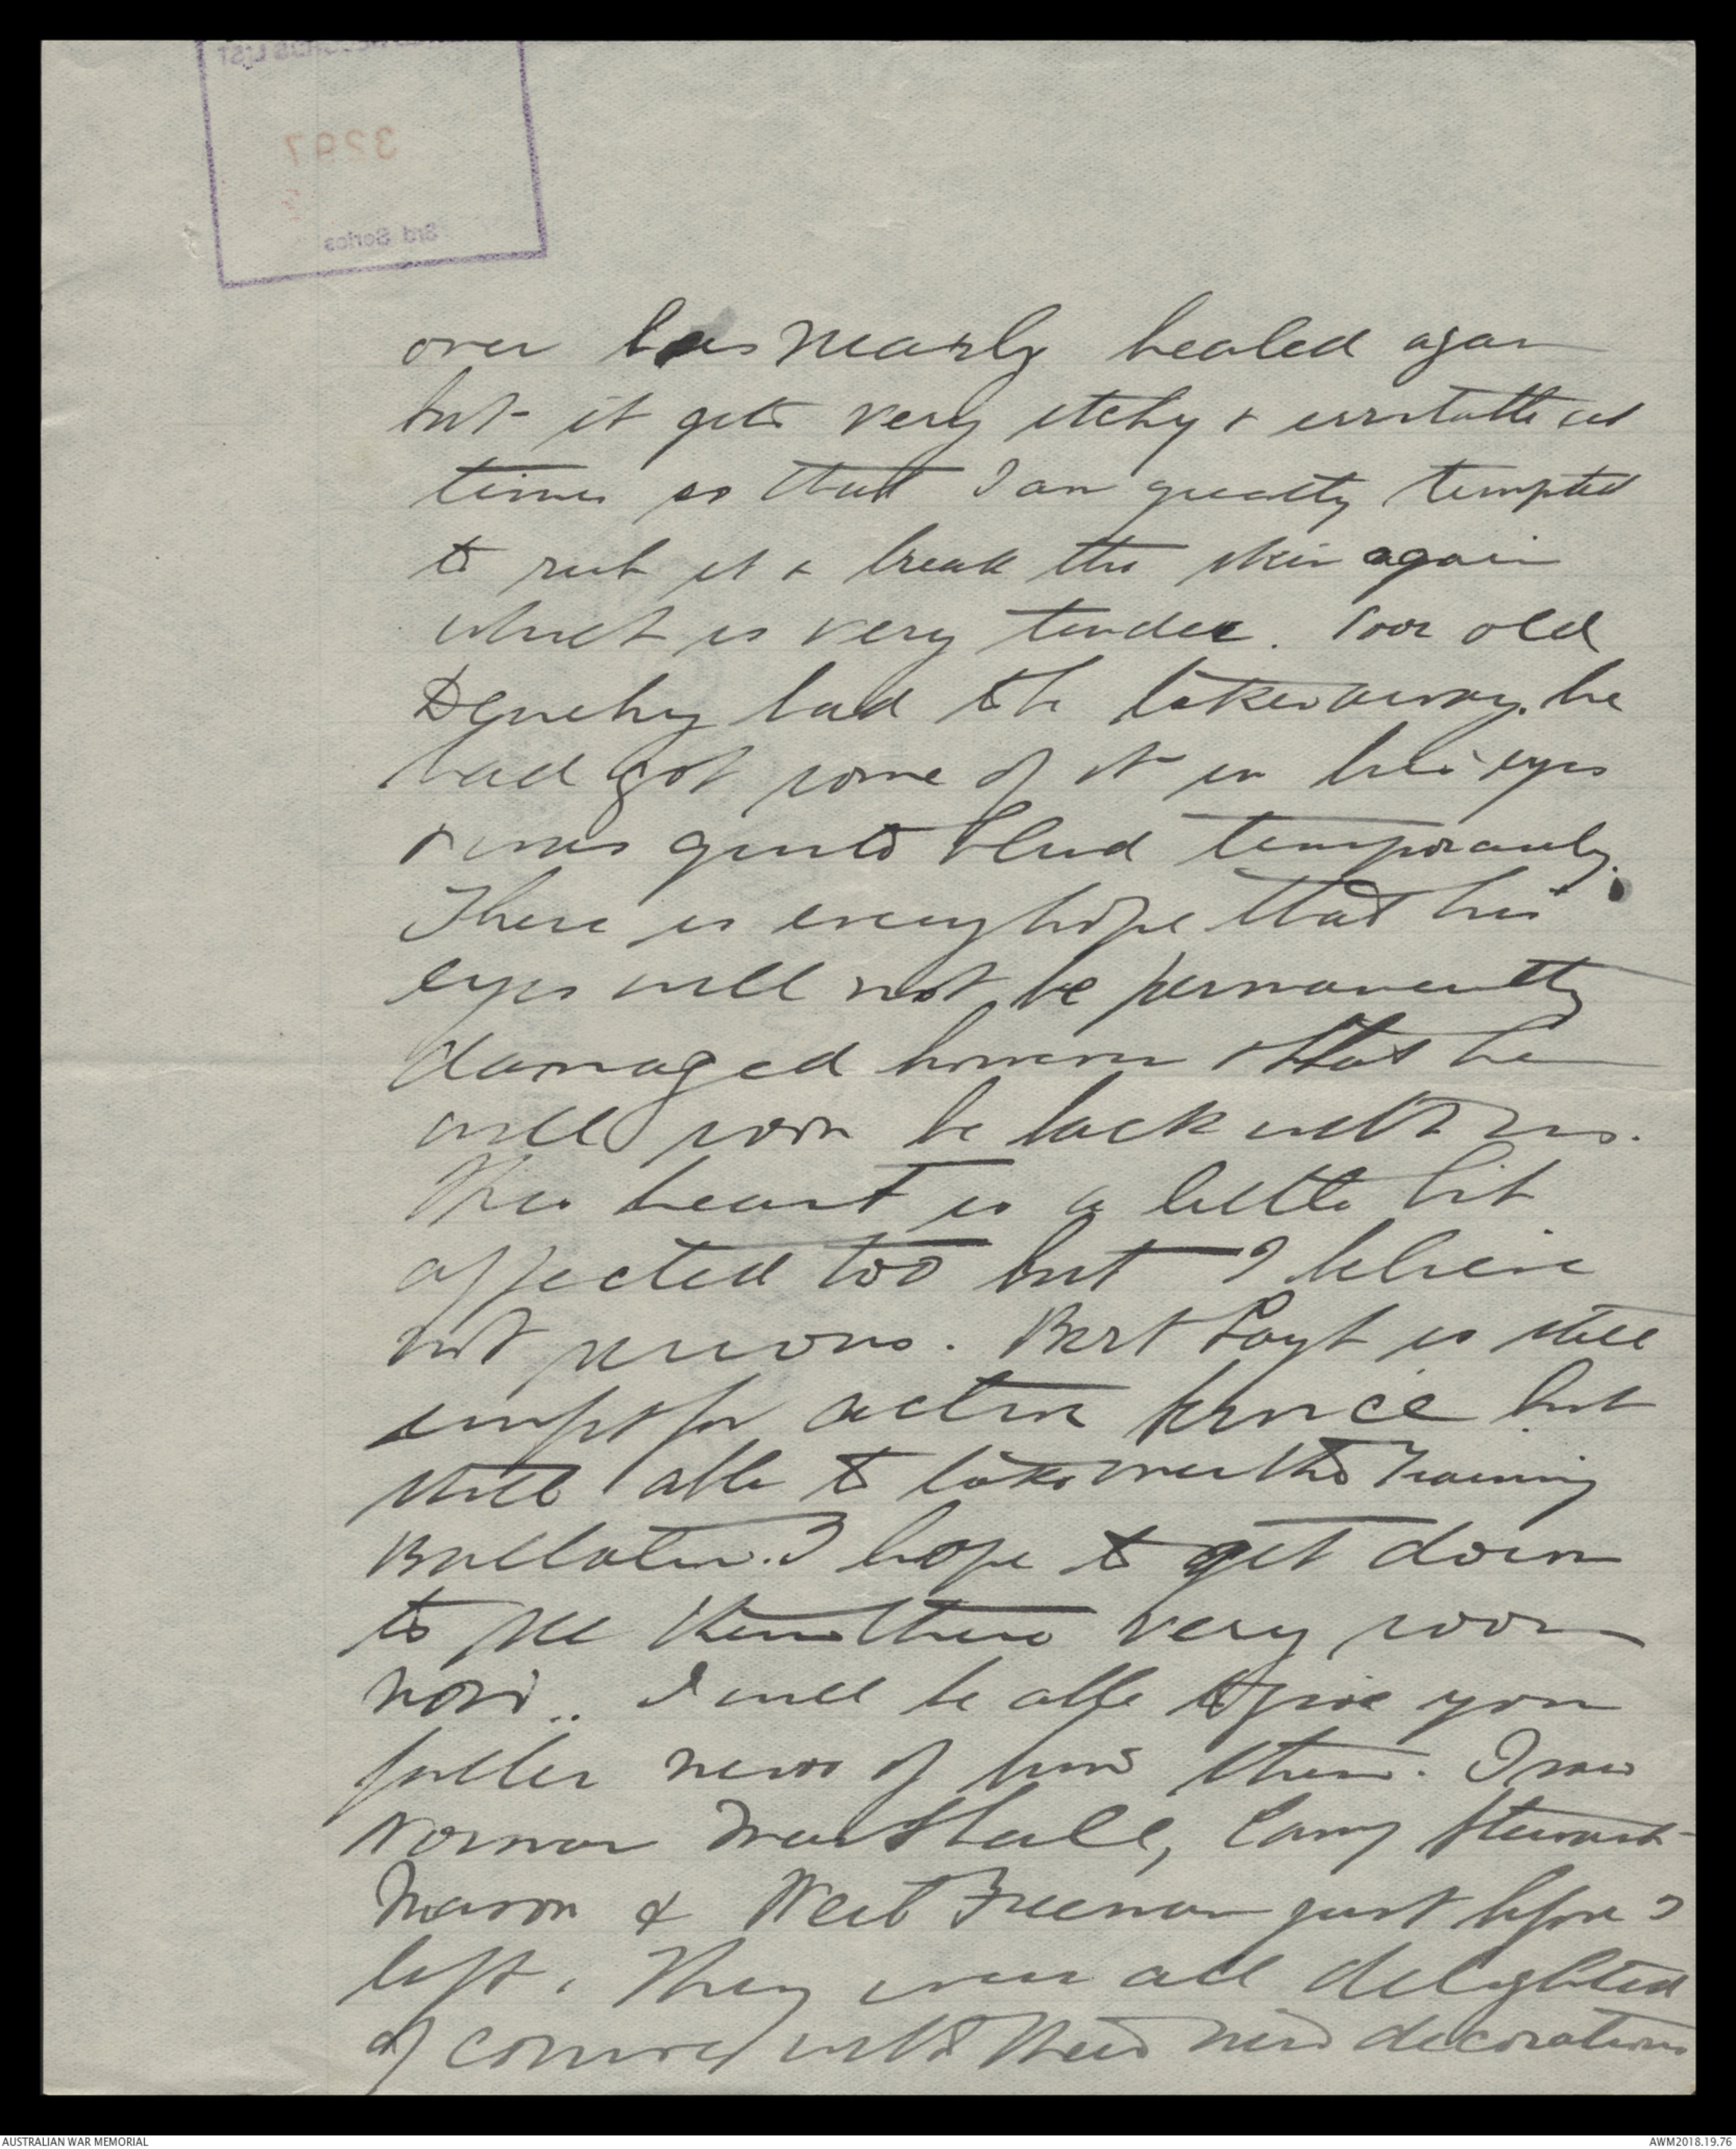 3297
3rd Series
over has nearly healed again
but it gets very itchy & irritable at
times so that I am greatly tempted
to rub it & break the skin again
which is very tender. Poor old
Denehy had to be taken away. he
had got some of it in his eyes
& was quite blind temporarily.
There is every hope that his
eyes will not be permanently
damaged however & that he
will soon be back with us.
His heart is a little bit
affected too but I believe
not serious. Bert Layh is still
unfit for active service but
still able to take over the Training
Battalion. I hope to get down
to see him there very soon
now.. I will be able to give you
fuller news of him then. I saw
Norman Marshall, Stewart
Mason & Freeman just before I
left. They were all delighted
of course with their new decorations
AUSTRALIAN WAR MEMORIAL
AWM2018.19.76